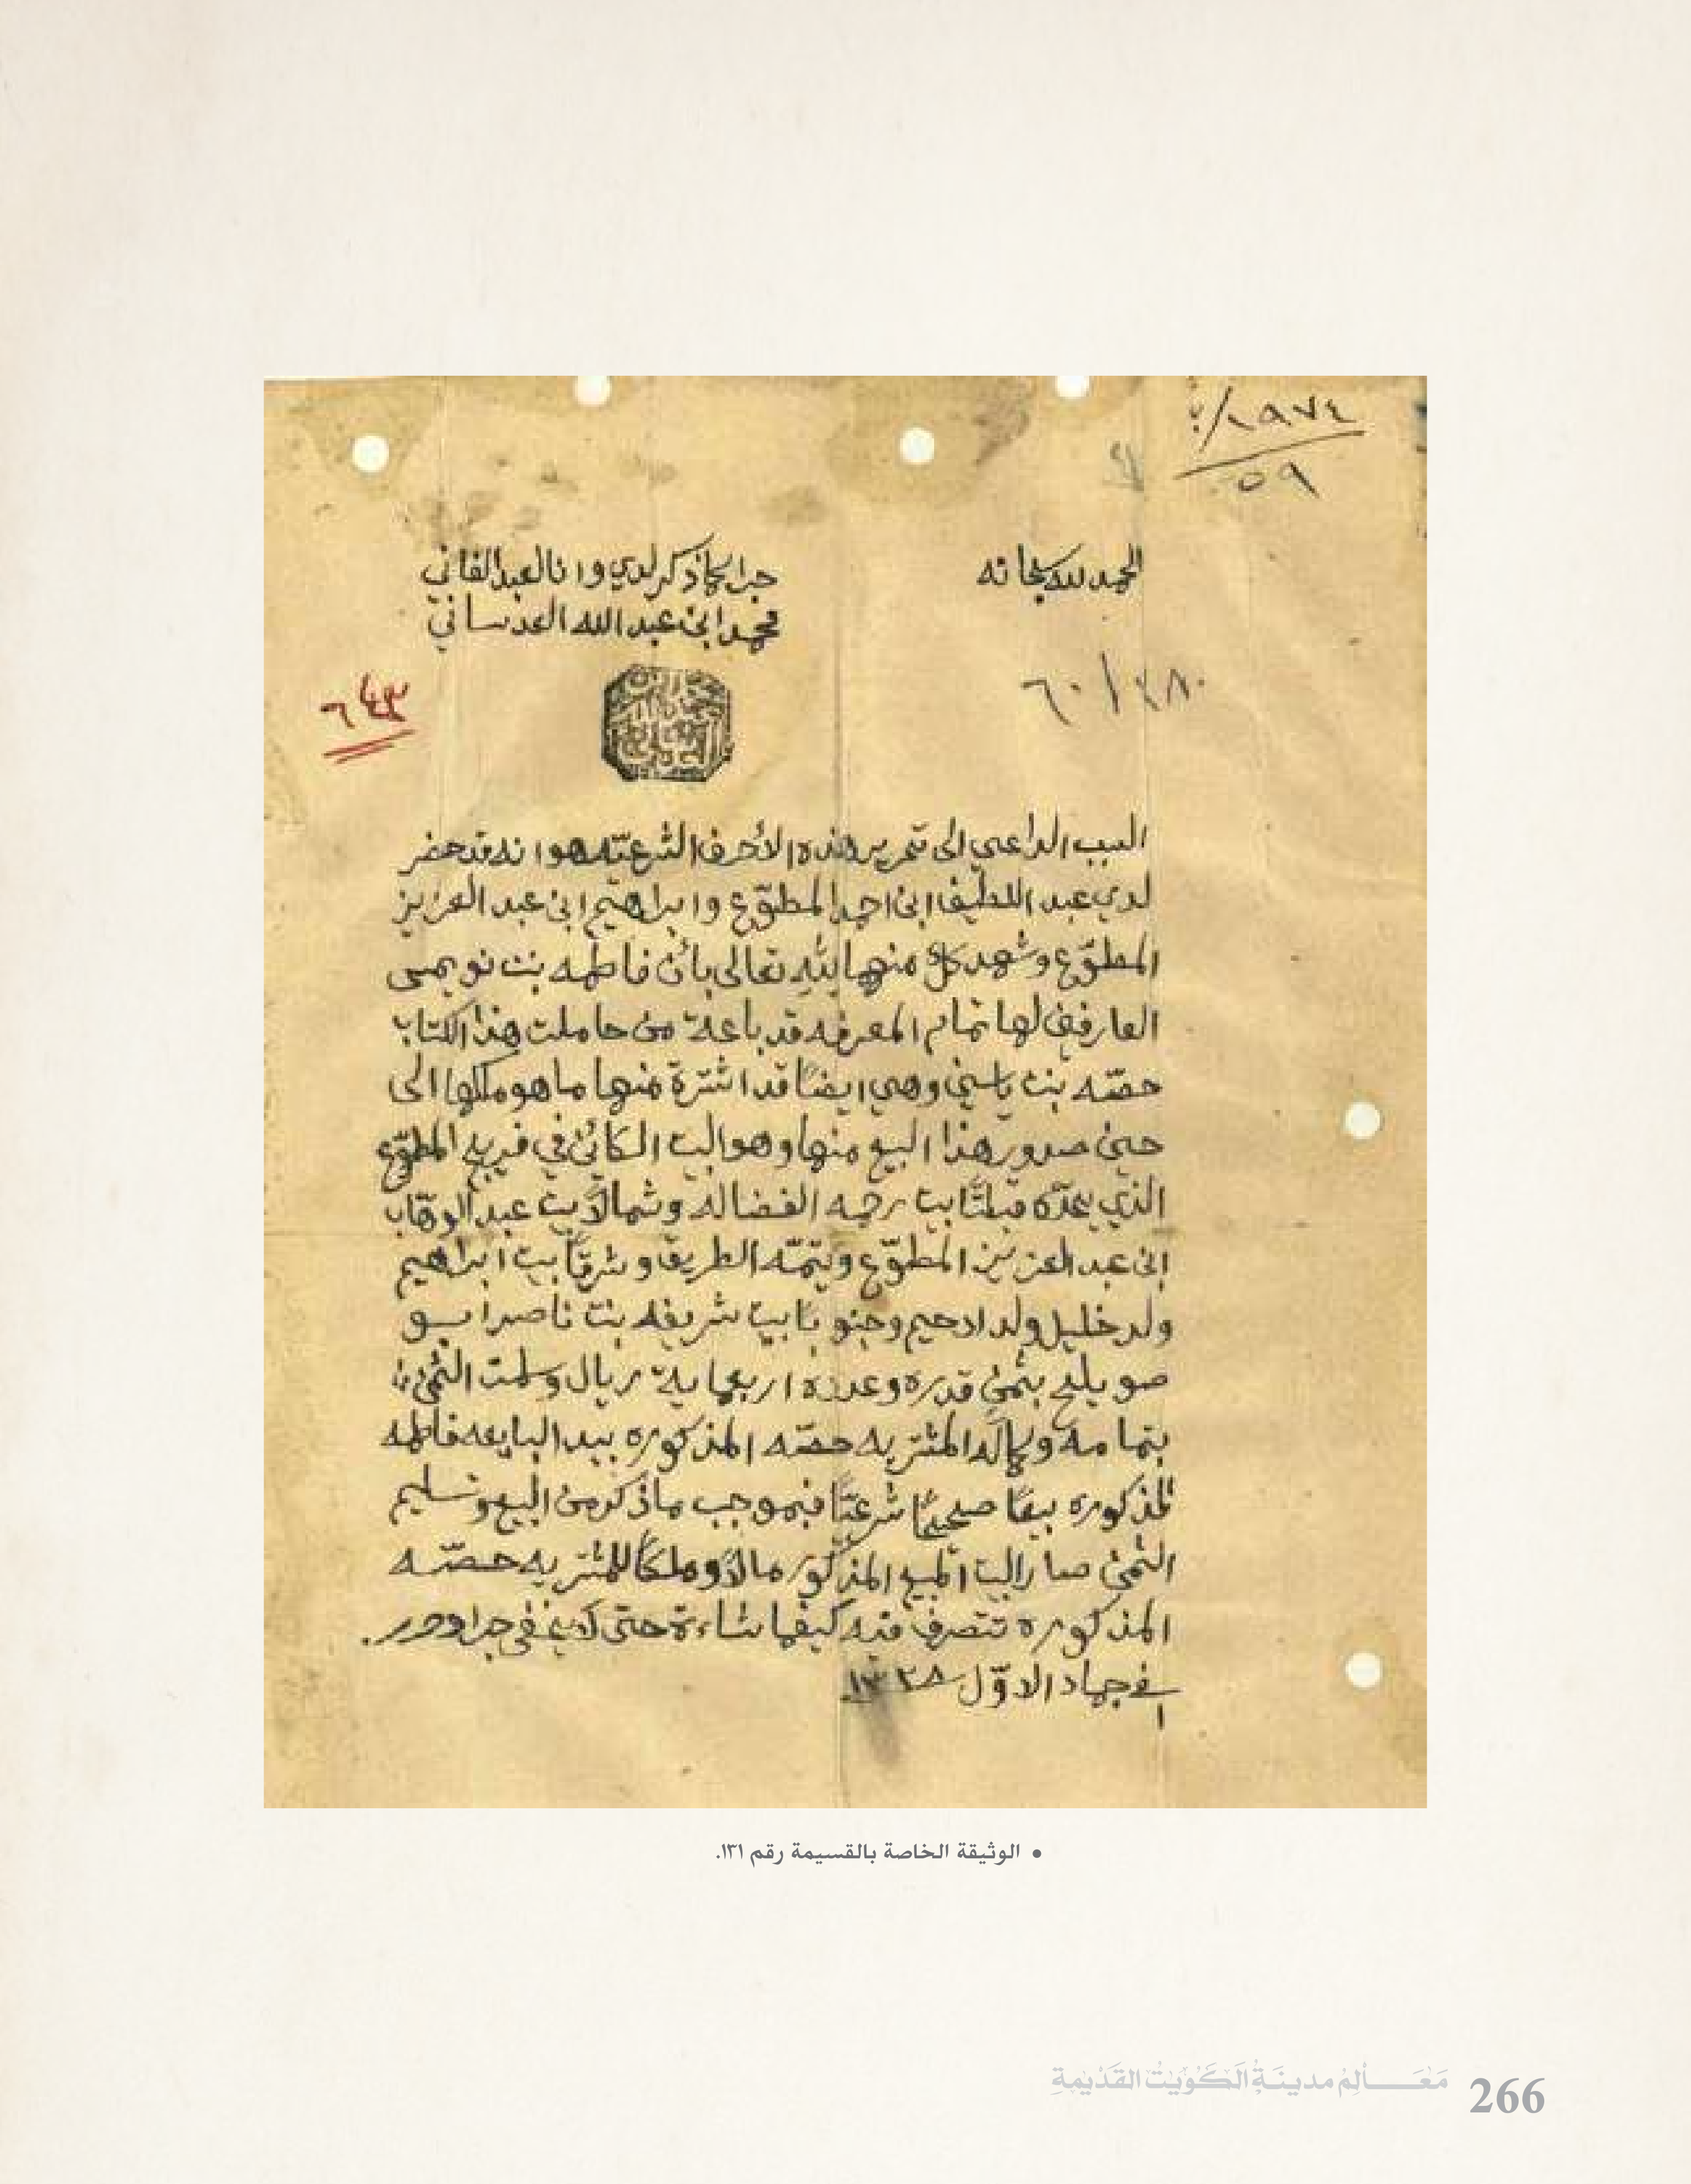 ١٩٧٤/ب
٥٩
الحمد لله سبحانه
جرا كما ذكر لدي وانا العبد الفاني
محمد ابن عبد الله العدساني
٦٠/٣٨٠
٦٤٣
السبب الداعي الى تحرير هذه الأحرف الشرعيّه هو انه قد حضر
لدي عبد اللطيف ابن احمد المطوّع وابراهيم ابن عبد العزيز
المطوّع وشهد كلٌ منهما لله تعالى بأن فاطمه بنت نويمي
العارفين لها تمام المعرفه قد باعة من حاملت هذا الكتاب
حصّه بنت ياسين وهي ايضًا قد اشترة منها ما هو ملكها الى
حين صدور هذا البيع منها وهو البيت الكائن في فريج المطوّع
الذي يحدّه قبلتًا بيت رحمه الفضاله وشمالاً بيت عبد الوهّاب
ابن عبد العزيز المطوّع ويتمّه الطريق وشرقًا بيت ابراهيم
ولد خليل ولد ادحيم وجنوبًا بيت شريفه بنت ناصر ابو
صويلح بثمن قدره وعدده اربعماية ريال وسلمت الثمن
بتمامه وكماله المشتريه حصّه المذكوره بيد البايعه فاطمه
المذكوره بيعًا صحيحًا شرعيًّا فبموجب ما ذكر من البيع وتسليم
الثمن صار البيت المبيع المذكور مالاً وملكًا للمشتريه حصّه
المذكوره تتصرف فيه كيفما شاءة حتى لا يخفى جرا وحرر
في جماد الاوّل ١٣٢٨
• الوثيقة الخاصة بالقسيمة رقم ١٣١.
مَعَالِمُ مدينَةِ الكُوَيْتِ القَدْيمةِ 266